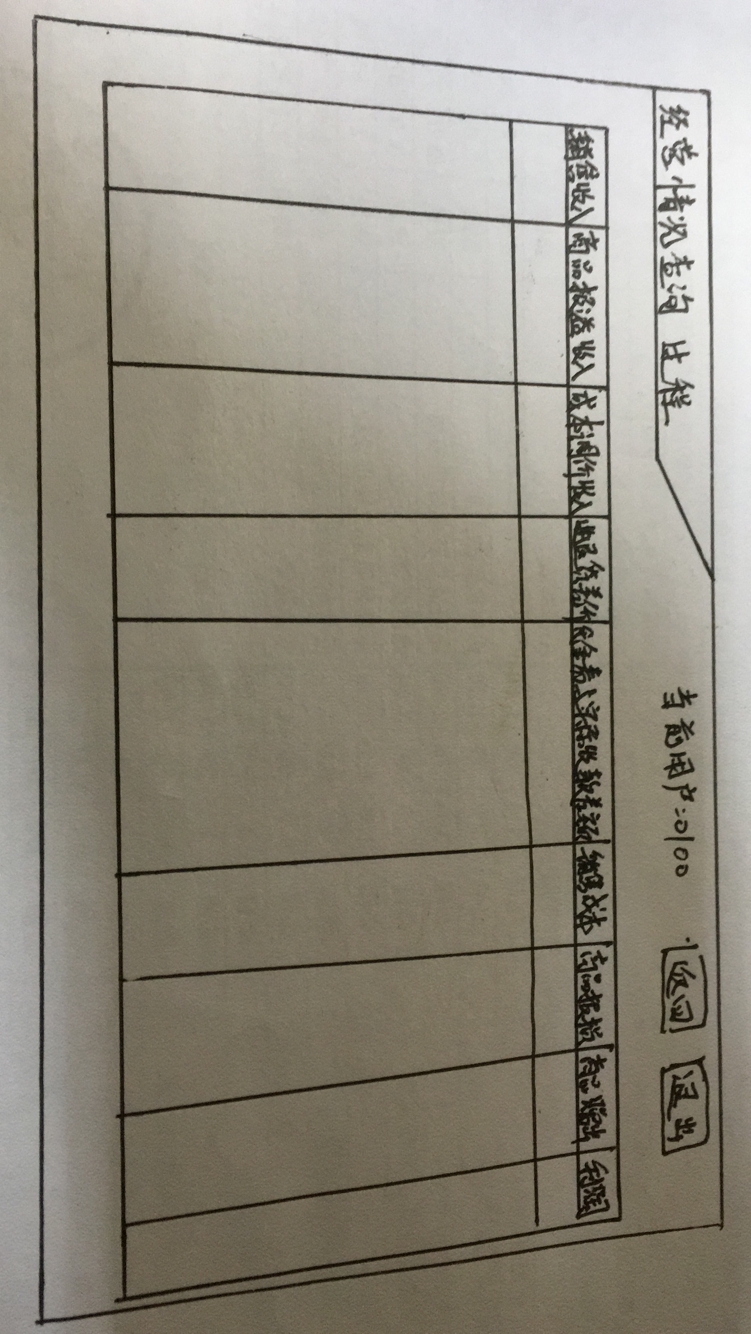 经营情况查询 过程 当前用户:0100 返回 退出
销售收入 商品报溢收入 成本调价收入 进退货差价 代金券与实际收款差额 销售成本 商品报损 商品赠出 利润